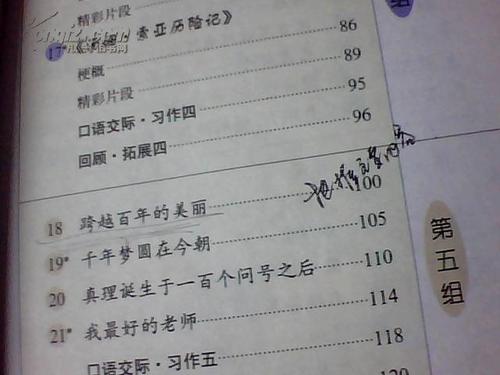 精彩片段
17* 《 索亚历险记》 86
梗概 89
精彩片段 95
口语交际·习作四 96
回顾·拓展四
18 跨越百年的美丽 100
19* 千年梦圆在今朝 105
20 真理诞生于一百个问号之后 110
21* 我最好的老师 114
口语交际·习作五 118
120
第五组
组